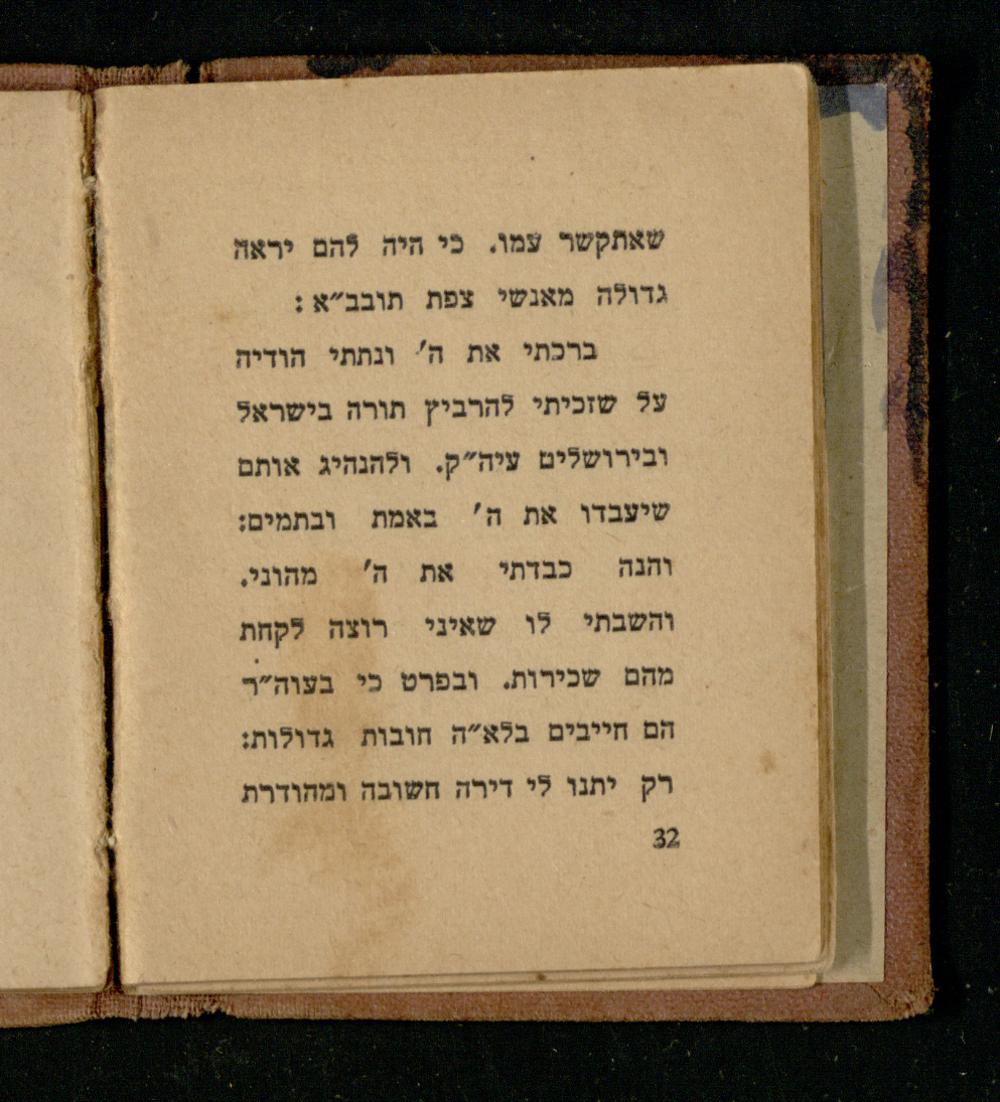 שאתקשר עמו. כי היה להם יראה
גדולה מאנשי צפת תובב״א :
ברכתי את ה׳ ונתתי הודיה
על שזכיתי להרביץ תורה בישראל
ובירושלים עיה״ק. ולהנהיג אותם
שיעבדו את ה׳ באמת ובתמים:
והנה כבדתי את ה׳ מהוני.
והשבתי לו שאיני רוצה לקחת
מהם שכירות. ובפרט כי בעוה״ר
הם חייבים בלא״ה חובות גדולות:
רק יתנו לי דירה חשובה ומהודרת
32